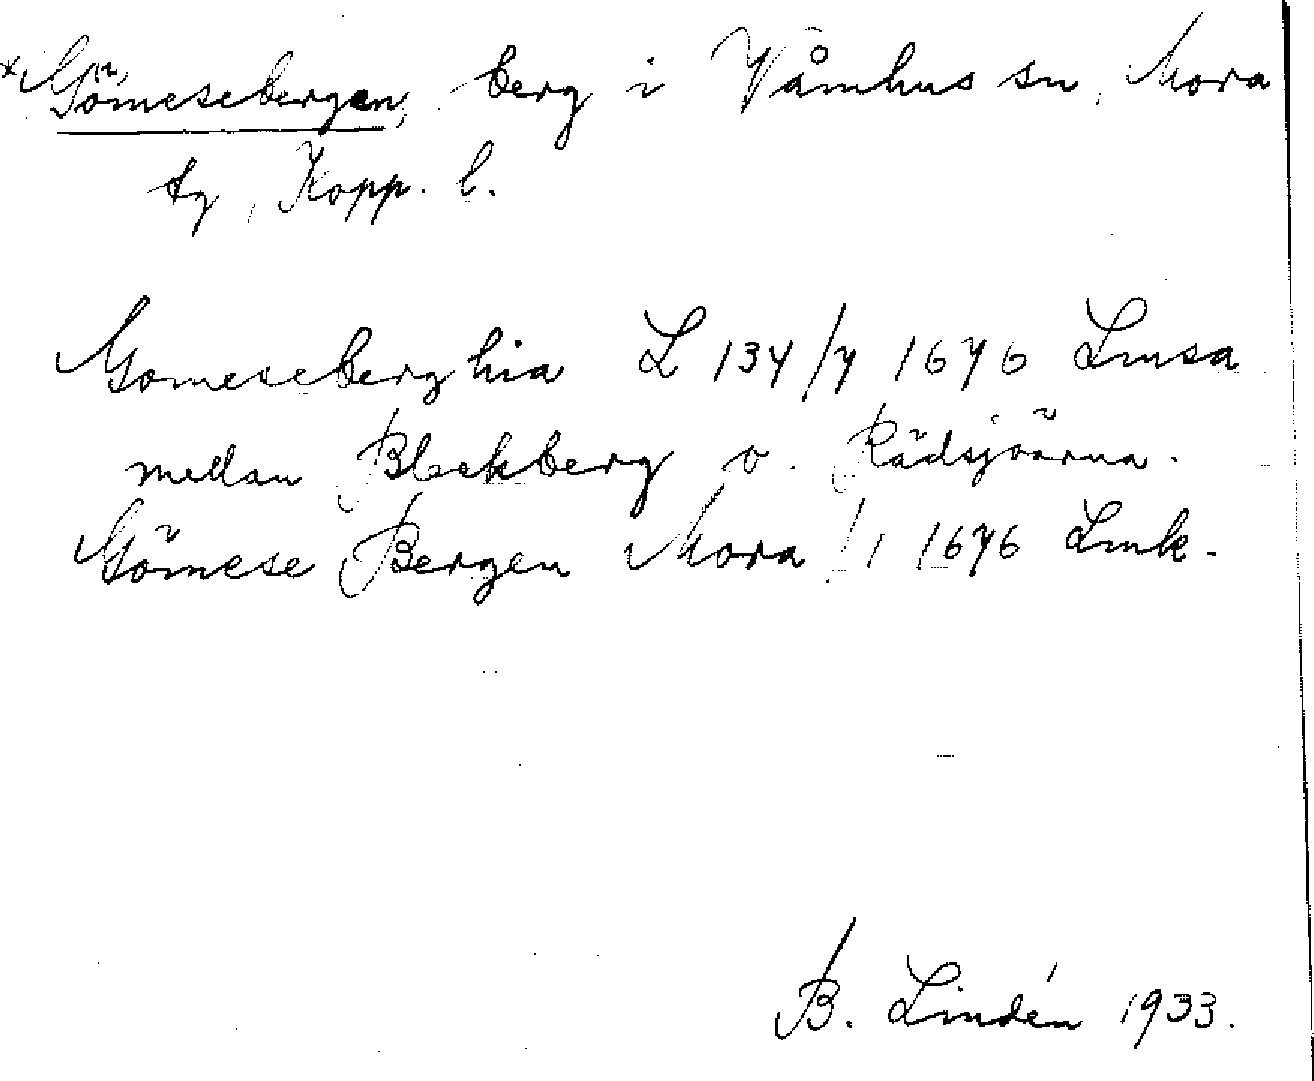 *Gömesebergen, berg i Våmhus sn, Mora
tg, Kopp. l.
Gomeseberg hia L 134/7 1676 Lmsa
mellan Bleckberg o. Rädsjöarna.
Gömese Bergen Mora /1 1676 Lmk.
B. Lindén 1933.